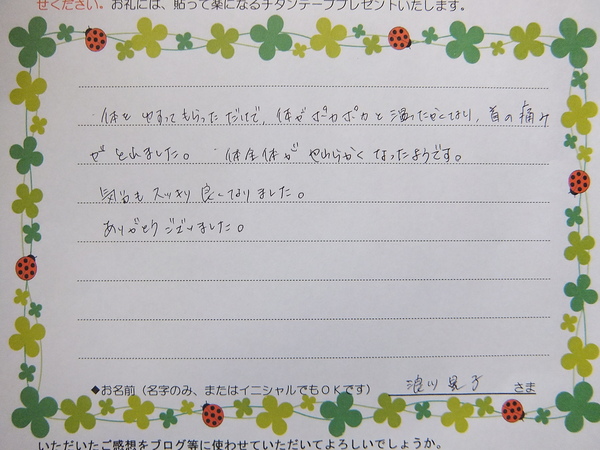 せください。お礼には、貼って楽になるチタンテーププレゼントいたします。
体を ゆすってもらっただけで、体がポカポカと温ったかくなり、首の痛み
がとれました。 体全体が やわらかく なったようです。
気分もスッキリ良くなりました。
ありがとうございました。
◆お名前（名字のみ、またはイニシャルでもＯＫです）
さま
いただいたご感想をブログ等に使わせていただいてよろしいでしょうか。